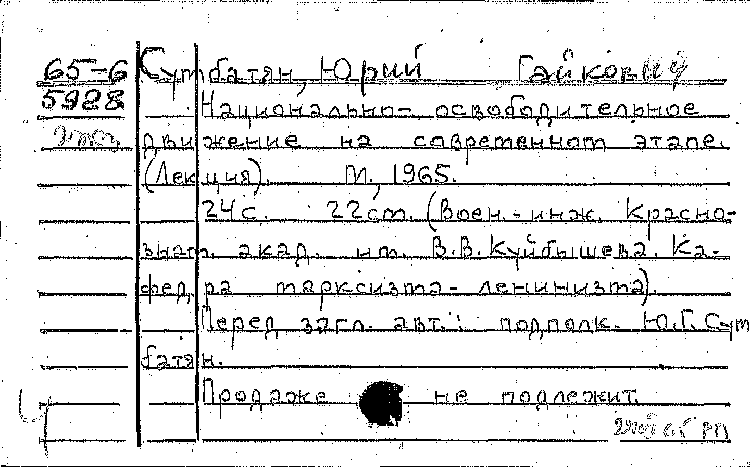 65-6 Сумбатян, Юрий Гайкович
5928 Национально-освободительное
движение на современном этапе.
(Лекция). М., 1965.
24с. 22см. (Воен.-инж. Красно-
знам. акад. им. В.В.Куйбышева. Ка-
федра марксизма-ленинизма).
Перед загл. авт.: подполк. Ю.Г.Сум
батян.
Продаже не подлежит.